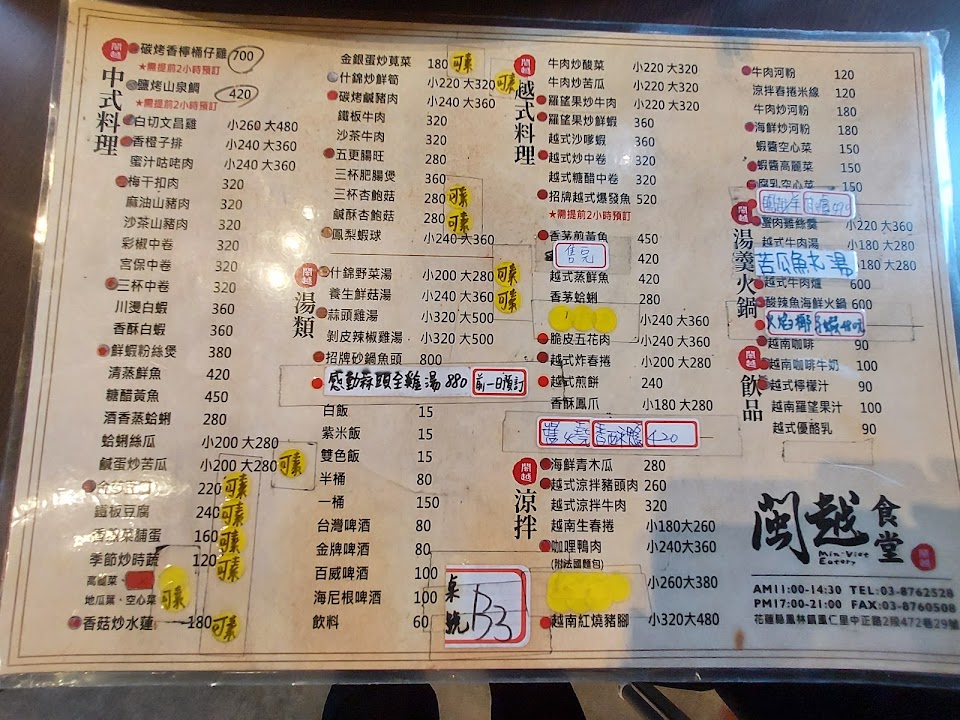 閩越
中式料理
碳烤香檸桶仔雞 700
★需提前2小時預訂
鹽烤山泉鯛 420
★需提前2小時預訂
白切文昌雞 小260 大480
香橙子排 小240 大360
蜜汁咕咾肉 小240 大360
梅干扣肉 320
麻油山豬肉 320
沙茶山豬肉 320
彩椒中卷 320
宮保中卷 320
三杯中卷 320
川燙白蝦 360
香酥白蝦 360
鮮蝦粉絲煲 380
清蒸鮮魚 420
糖醋黃魚 450
酒香蒸蛤蜊 280
蛤蜊絲瓜 小200 大280
鹹蛋炒苦瓜 小200 大280 可素
220 可素
鐵板豆腐 240 可素
香 菜脯蛋 160 可素
季節炒時蔬 120 可素
高麗菜、
地瓜葉、空心菜 可素
香菇炒水蓮 180 可素
金銀蛋炒莧菜 180 可素
什錦炒鮮筍 小220 大320 可素
碳烤鹹豬肉 小240 大360
鐵板牛肉 320
沙茶牛肉 320
五更腸旺 280
三杯肥腸煲 360
三杯杏鮑菇 280 可素
鹹酥杏鮑菇 280 可素
鳳梨蝦球 小240 大360
閩越
湯類
什錦野菜湯 小200 大280 可素
養生鮮菇湯 小240 大360 可素
蒜頭雞湯 小320 大500
剝皮辣椒雞湯 小320 大500
招牌砂鍋魚頭 800
感動蒜頭全雞湯 880 前一日預訂
白飯 15
紫米飯 15
雙色飯 15
半桶 80
一桶 150
台灣啤酒 80
金牌啤酒 80
百威啤酒 100
海尼根啤酒 100
飲料 60
桌號 B3
閩越
越式料理
牛肉炒酸菜 小220 大320
牛肉炒苦瓜 小220 大320
羅望果炒牛肉 小220 大320
羅望果炒鮮蝦 360
越式沙嗲蝦 360
越式炒中卷 320
越式糖醋中卷 320
招牌越式爆發魚 520
★需提前2小時預訂
香茅煎黃魚 450
售完 420
越式蒸鮮魚 420
香茅蛤蜊 280
小240 大360
脆皮五花肉 小240 大360
越式炸春捲 小200 大280
越式煎餅 240
香酥鳳爪 小180 大280
香酥 420
閩越
涼拌
海鮮青木瓜 280
越式涼拌豬頭肉 260
越式涼拌牛肉 320
越南生春捲 小180大260
咖哩鴨肉 小240大360
(附法國麵包)
小260大380
越南紅燒豬腳 小320大480
牛肉河粉 120
涼拌春捲米線 120
牛肉炒河粉 180
海鮮炒河粉 180
蝦醬空心菜 150
蝦醬高麗菜 150
腐乳空心菜 150
閩越
湯羹火鍋
蟹肉雞絲羹 小220 大360
越式牛肉湯 小180 大280
苦瓜魚丸湯 小180 大280
越式牛肉爐 600
酸辣魚海鮮火鍋 600
火焰椰子蝦
閩越
飲品
越南咖啡 90
越南咖啡牛奶 100
越式檸檬汁 90
越南羅望果汁 100
越式優酪乳 90
閩越食堂
Min-Viet
Eatery
閩越
AM11:00-14:30 TEL:03-8762528
PM17:00-21:00 FAX:03-8760508
花蓮縣鳳林鎮鳳仁里中正路2段472巷29號